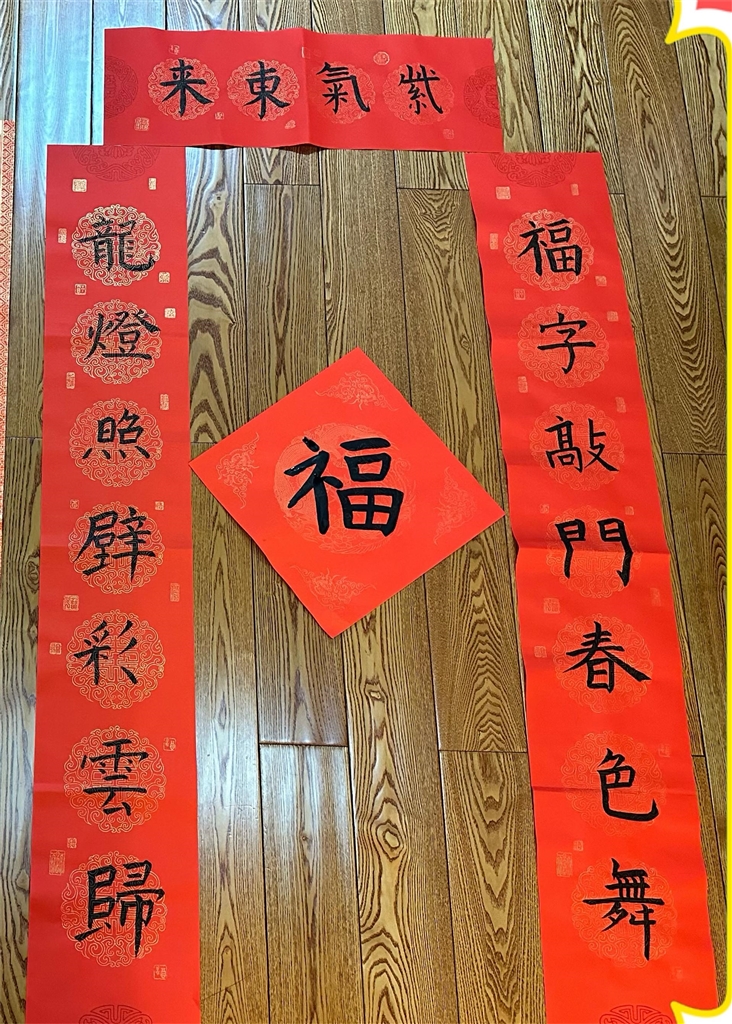 紫氣東来
福字敲門春色舞
龍燈照壁彩雲歸
福